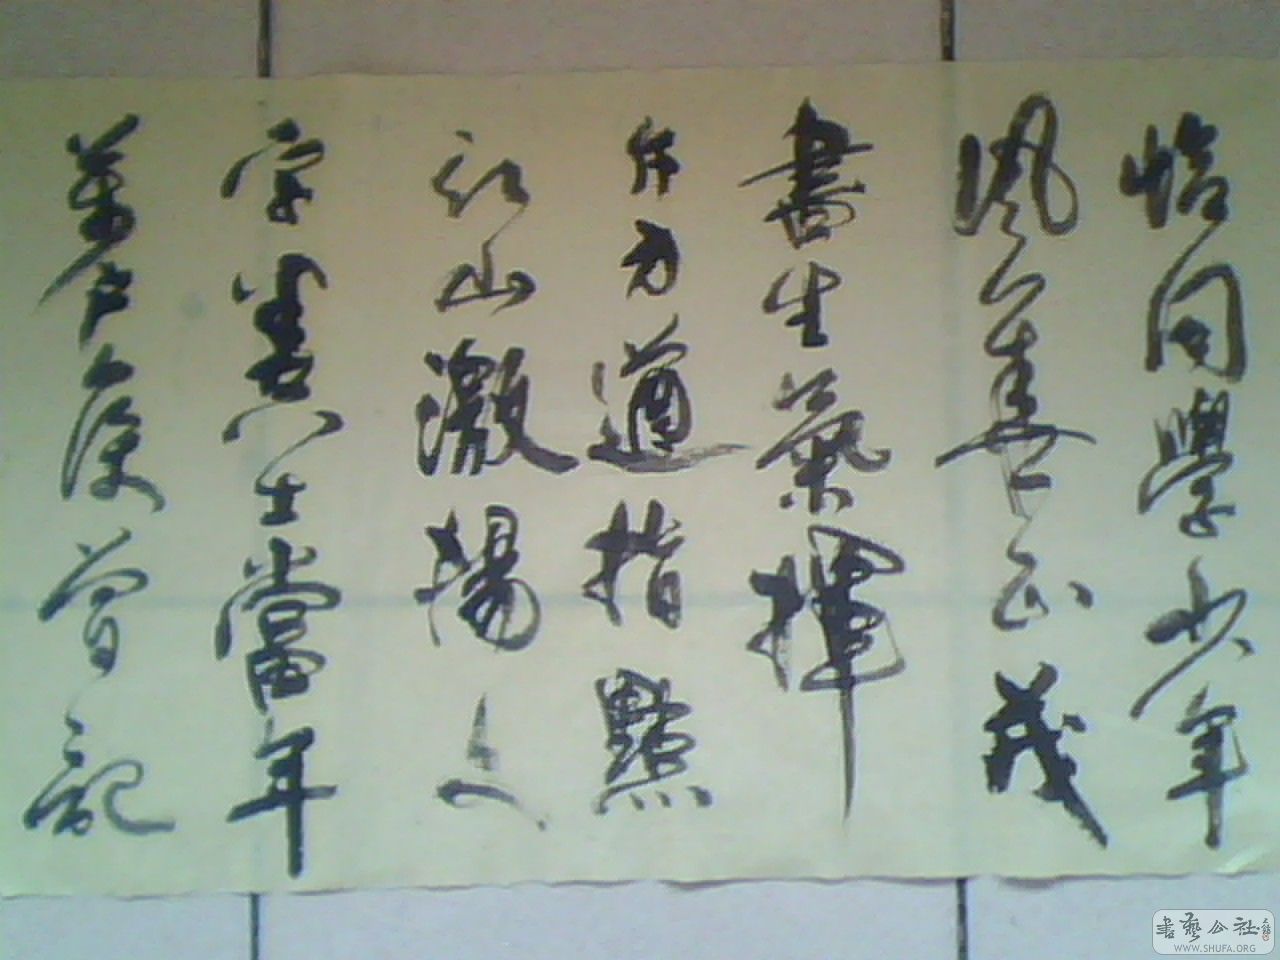 恰同學少年
風華正茂
書生氣揮
斥方遒指點
江山激揚文
字糞土當年
萬户侯曾記
書藝公社
WWW.SHUFA.ORG